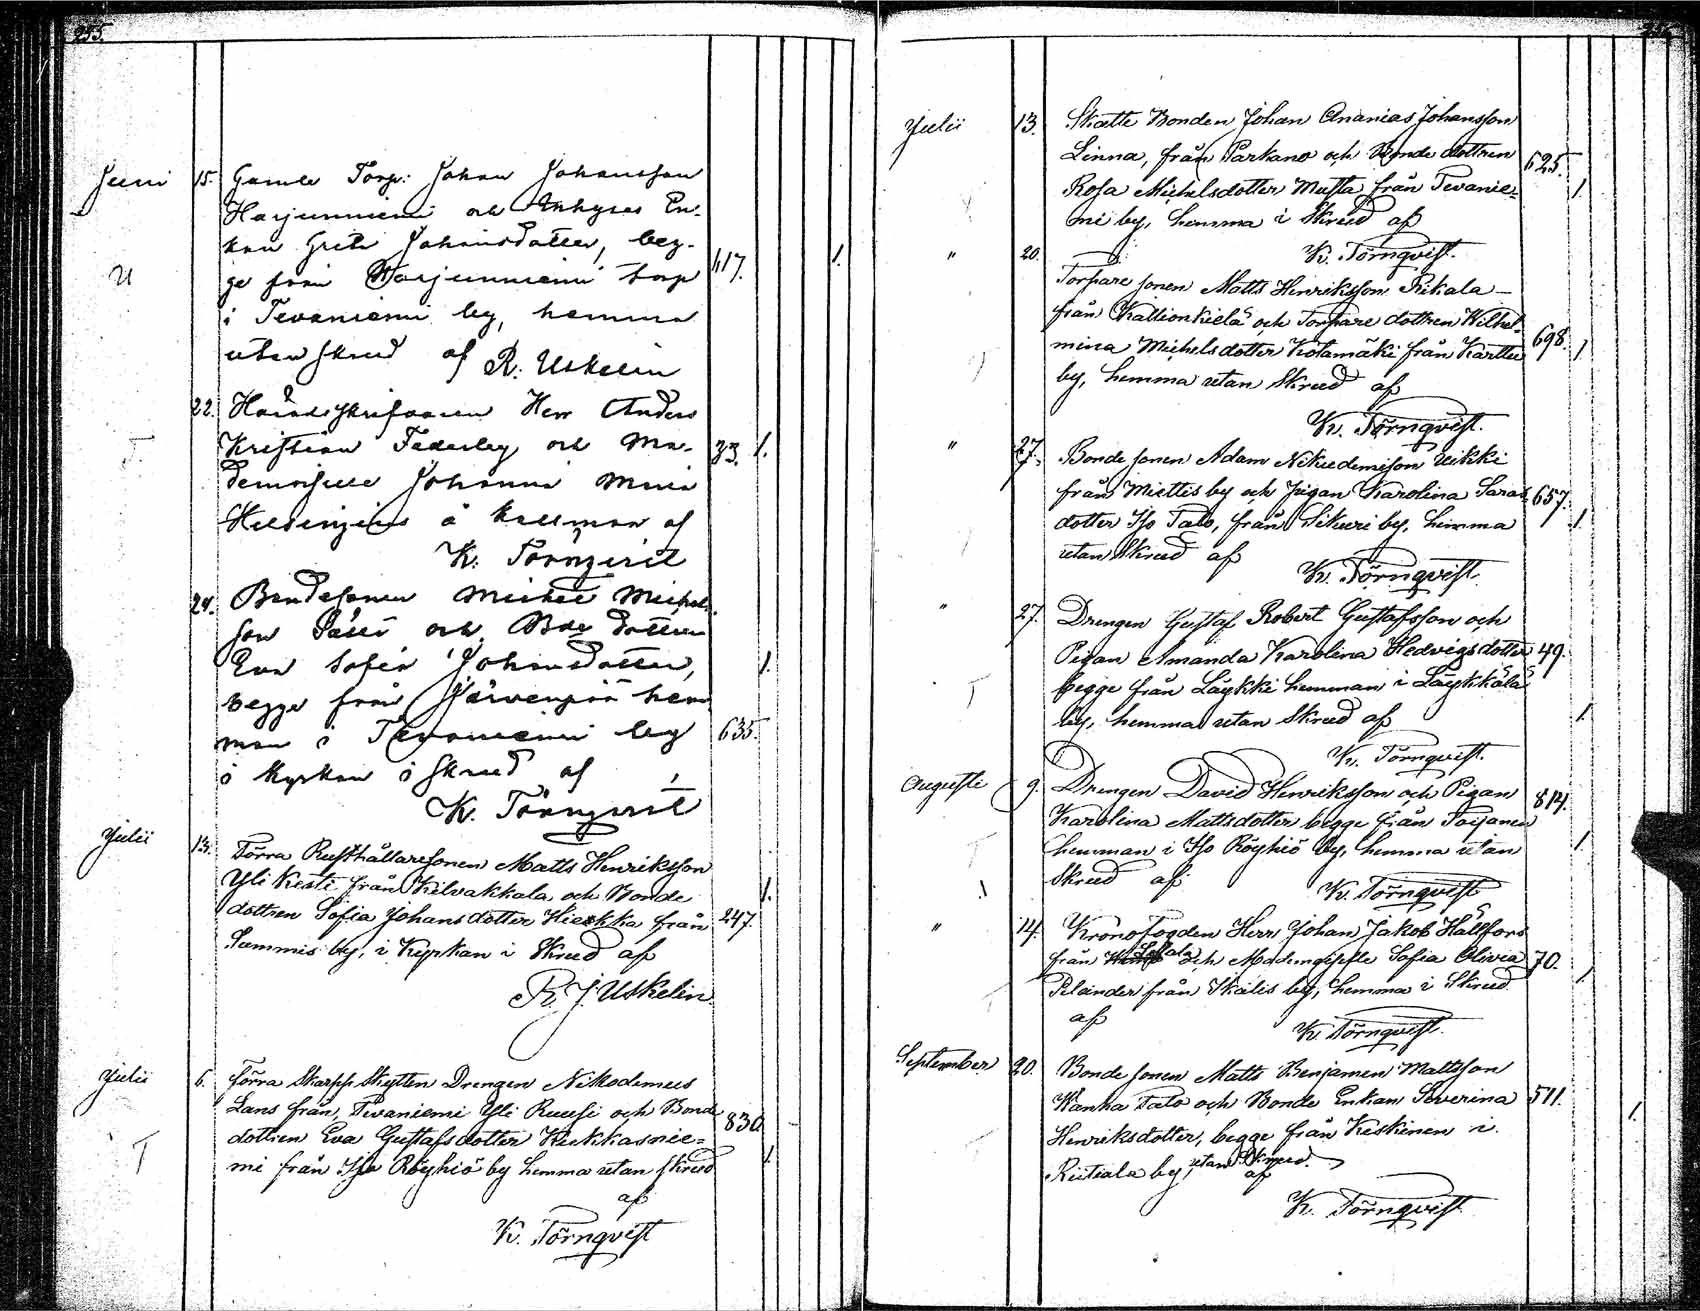 255.
Juni 15. Gamle Torp: Johan Johansson
Harjunniemi och Inhyses En-
kan Greta Johansdotter, beg-
ge från Harjunniemi torp 417. 1.
i Tevaniemi by, hemma
utan skrud af R. Uskelin
22. Häradsskrifvaren Herr Anders
Kristian Federley och Ma- 33. 1.
demoiselle Johanna Maria
Heldenjens å Kallmaa af
K. Törnqvist
24. Bondesonen Michel Michels-
son och Bde dottren
Eva Sofia Johansdotter, 1.
begge från Järvenpää hem
man i Tevaniemi by 635.
i Kyrkan i skrud af
K. Törnqvist
Julii 13. Förra Rusthållaresonen Matts Henriksson
Yli Kesti från Kilvakkala och Bonde 1.
dottren Sofia Johansdotter Hiekka från 247.
Sammis by, i Kyrkan i Skrud af
R J Uskelin
Julii 6. Förra Skarpp Skytten Drengen Nikodemus
Lans från, Tevaniemi Yli Ruusi och Bonde 830
dottren Eva Gustafsdotter Kiekkasnie=
mi från Iso Röyhiö by hemma utan skrud 1.
T
af
K. Törnqvist
Julii 13. Skatte Bonden Johan Ananias Johansson
Linna, från Parkano och Bonde dottren 625.
Rosa Michelsdotter Musta från Tevanie= 1.
mi by, hemma i Skrud af
" 20. K. Törnqvist.
Torpare sonen Matts Henriksson Rikala
från Kallionkielä och Torpare dottren Wilhel=
mina Michelsdotter Kotamäki från Karttu 698. 1.
by, hemma utan Skrud af
K. Törnqvist.
" 27. Bonde sonen Adam Nikudemison Uikki
från Miettis by och Pigan Karolina Saras 657.
dotter Iso Talo, från Sikuri by, hemma 1.
utan Skrud af
K. Törnqvist
" 27. Drengen Gustaf Robert Gustafsson och
Pigan Amanda Karolina Hedvigsdotter 49.
begge från Läykki hemman i Läykkälä
by, hemma utan Skrud af 1.
K. Törnqvist.
Augusti 9. Drengen David Henriksson och Pigan 814.
Karolina Mattsdotter begge från Toijanen
hemman i Iso Röyhiö by, hemma utan 1.
Skrud af
K. Törnqvist
" 14. Krono Fogden Herr Johan Jakob Hällfors
från och Mademoiselle Sofia Olivia 70.
Pelander från Skälis by, hemma i Skrud 1.
af
K. Törnqvist.
September 20. Bonde sonen Matts Benjamen Mattson
Wanha Talo och Bonde Enkan Severina 511. 1.
Henriksdotter, begge från Keskinen i
Riitiala by, utan Skrud.
af
K. Törnqvist